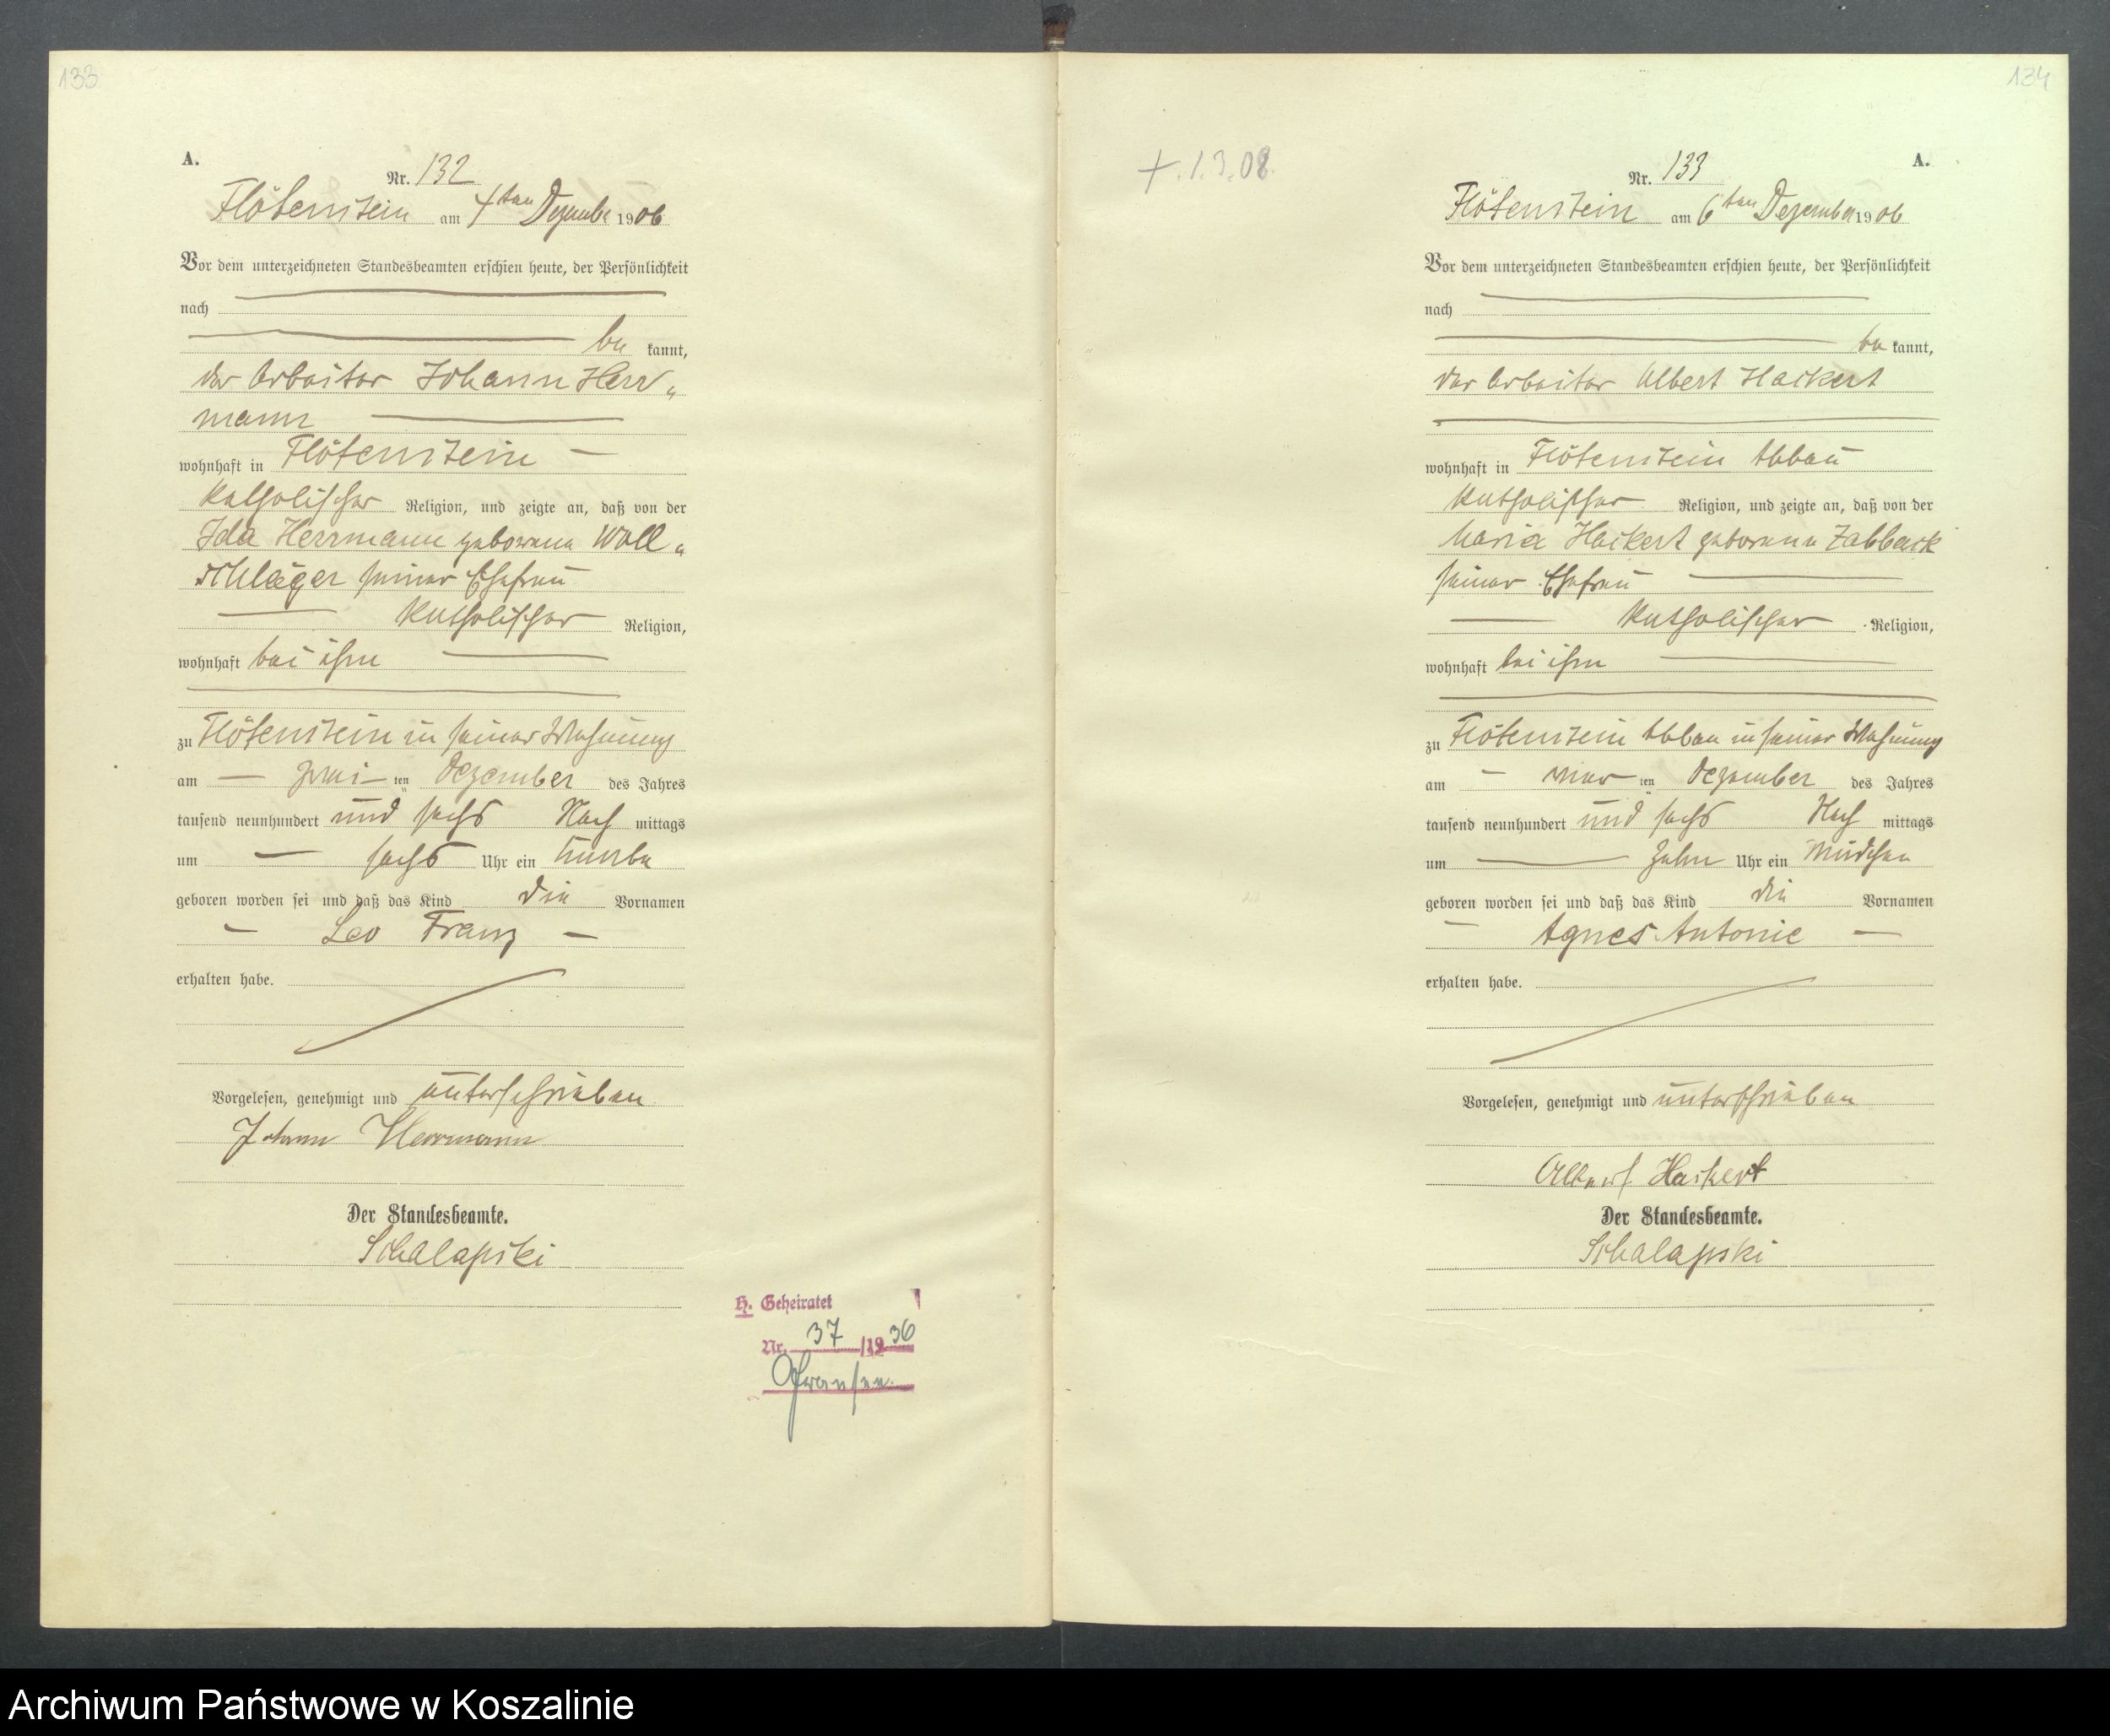 133
A.
Nr. 132
Flötenstein am 4ten Dezember 1906
Vor dem unterzeichneten Standesbeamten erschien heute, der Persönlichkeit
nach
be kannt,
der Arbeiter Johann Herr„
mann
wohnhaft in Flötenstein
katholischer Religion, und zeigte an, daß von der
Ida Herrmann geborene Woll„
schläger seiner Ehefrau
katholischer Religion,
wohnhaft bei ihm
zu Flötenstein in seiner Wohnung
am zwei ten Dezember des Jahres
tausend neunhundert und sechs Nach mittags
um sechs Uhr ein Knabe
geboren worden sei und daß das Kind die Vornamen
Leo Franz
erhalten habe.
Vorgelesen, genehmigt und unterschrieben
Johann Herrmann
Der Standesbeamte.
Schalapski
H. Geheiratet
Nr. 37 /1936
134
+. 1.3.08.
A.
Nr. 133
Flötenstein am 6ten Dezember 1906
Vor dem unterzeichneten Standesbeamten erschien heute, der Persönlichkeit
nach
be kannt,
der Arbeiter Albert Hackert
wohnhaft in Flötenstein Abbau
katholischer Religion, und zeigte an, daß von der
Maria Hackert geborene Zabback
seiner Ehefrau
katholischer Religion,
wohnhaft bei ihm
zu Flötenstein Abbau in seiner Wohnung
am vier ten Dezember des Jahres
tausend neunhundert und sechs Nach mittags
um zehn Uhr ein Mädchen
geboren worden sei und daß das Kind die Vornamen
Agnes Antonie
erhalten habe.
Vorgelesen, genehmigt und unterschrieben
Albert Hackert
Der Standesbeamte.
Schalapski
Archiwum Państwowe w Koszalinie